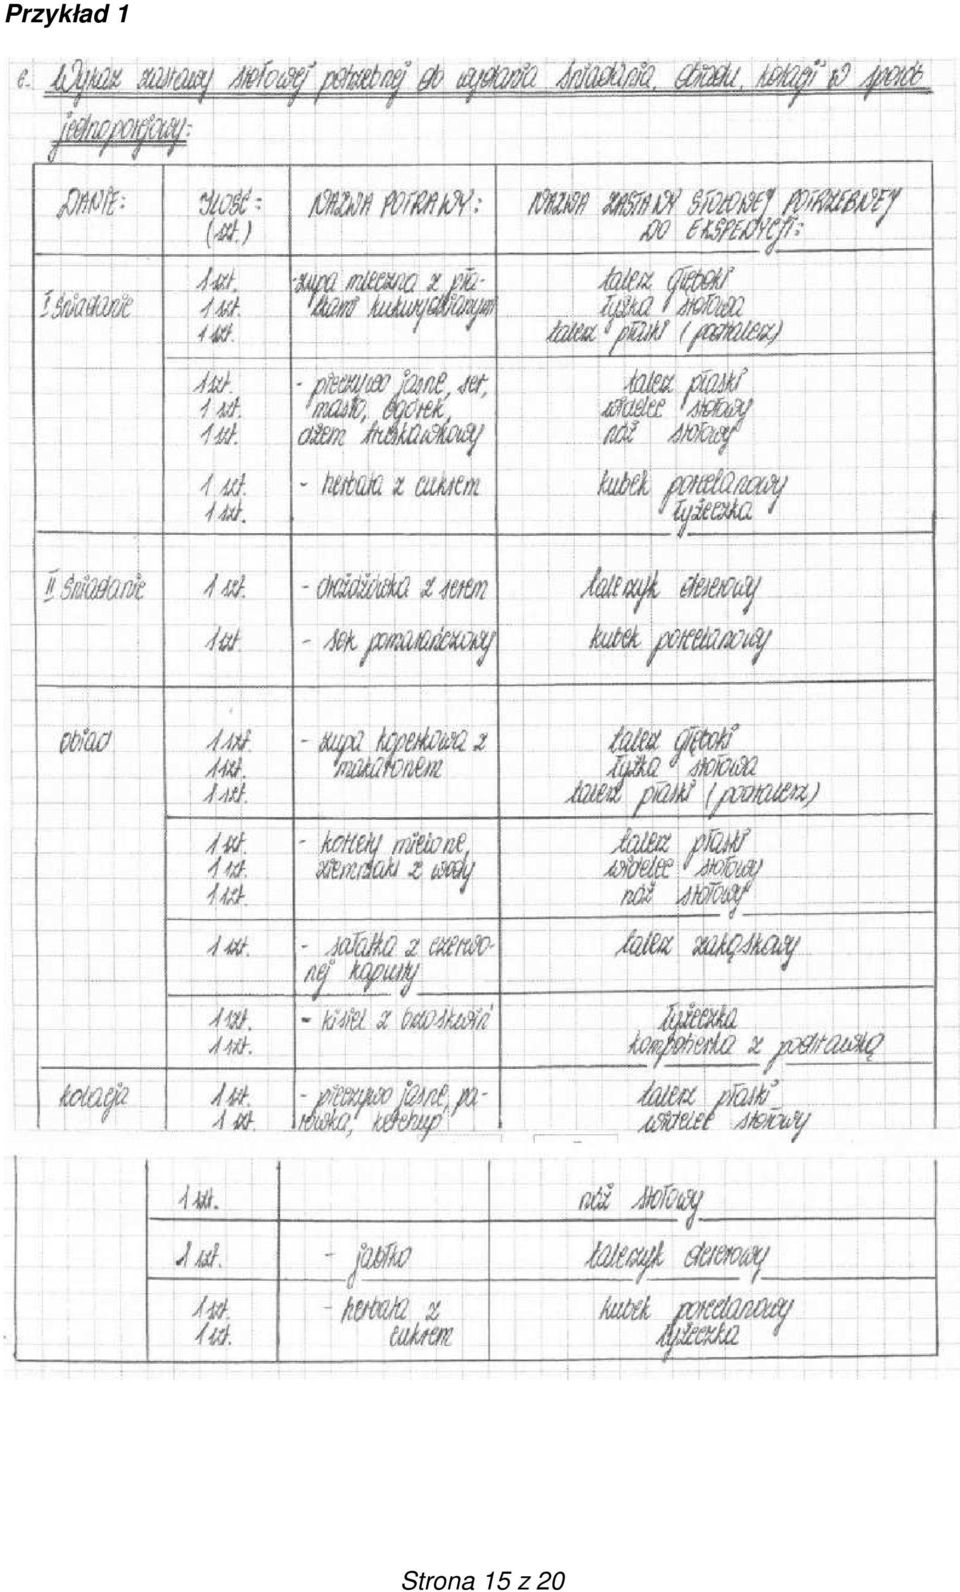 Przykład 1
6. Wykaz zastawy stołowej potrzebnej do wydania śniadania, obiadu, kolacji w sposób
jednoporcjowy:
DANIE: ILOŚĆ: NAZWA POTRAWY: NAZWA ZASTAWY STOŁOWEJ POTRZEBNEJ
(szt.) DO EKSPEDYCJI:
1 szt. - zupa mleczna z pła- talerz głęboki
I śniadanie 1 szt. tkami kukurydzianymi łyżka stołowa
1 szt. talerz płaski (podtalerz)
1 szt. - pieczywo jasne, ser, talerz płaski
1 szt. masło, ogórek, widelec stołowy
1 szt. dżem truskawkowy nóż stołowy
1 szt. - herbata z cukrem kubek porcelanowy
1 szt. łyżeczka
II śniadanie 1 szt. - drożdżówka z serem talerzyk deserowy
1 szt. - sok pomarańczowy kubek porcelanowy
obiad 1 szt. - zupa koperkowa z talerz głęboki
1 szt. makaronem łyżka stołowa
1 szt. talerz płaski (podtalerz)
1 szt. - kotlety mielone, talerz płaski
1 szt. ziemniaki z wody widelec stołowy
1 szt. nóż stołowy
1 szt. - sałatka z czerwo- talerz zakąskowy
nej kapusty
1 szt. - kisiel z brzoskwiń łyżeczka
1 szt. kompotierka z podstawką
kolacja 1 szt. - pieczywo jasne, pa- talerz płaski
1 szt. rówka, ketchup widelec stołowy
1 szt. nóż stołowy
1 szt. - jabłko talerzyk deserowy
1 szt. - herbata z kubek porcelanowy
1 szt. cukrem łyżeczka
Strona 15 z 20